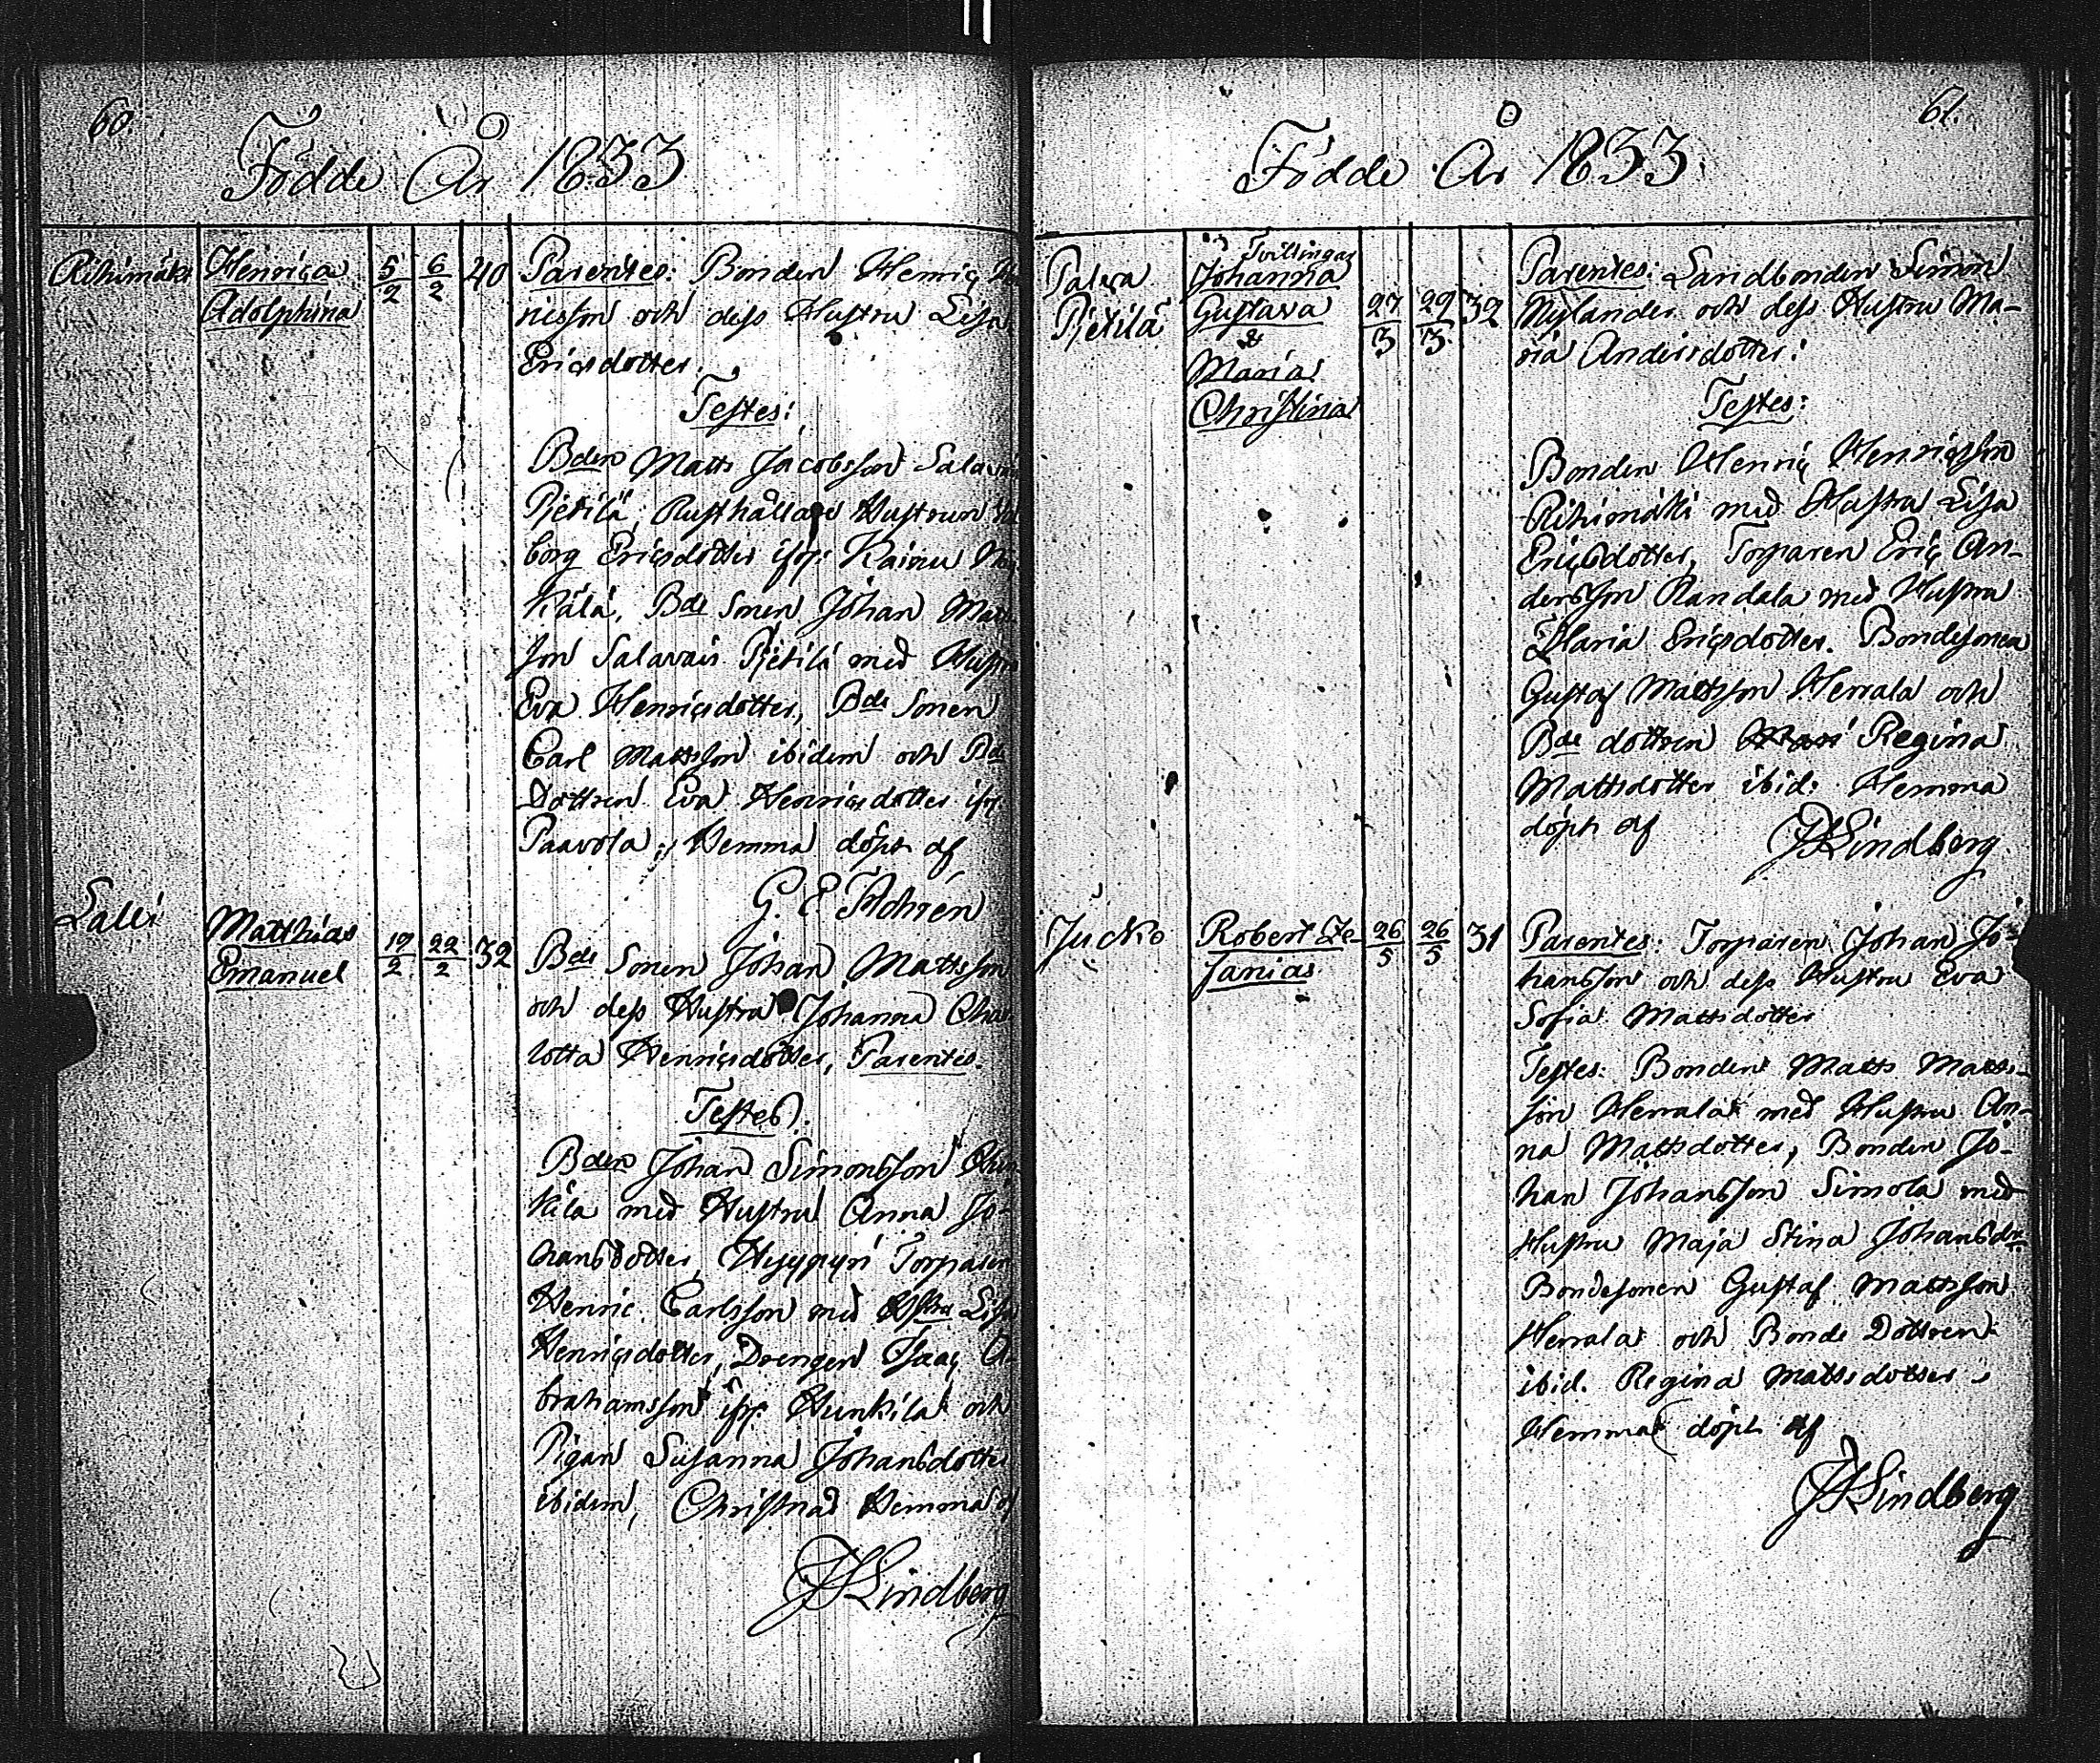 60.
Födde År 1833
Rihimäki Henrica 5/2 6/2 40 Parentes: Bonden Henric
Adolphina nicsson och dess Hustru Lisa
Ericsdotter
Testes:
Bden Matts Jacobsson
Pjetilä, Rusthållare Hustrun
borg Ericsdotter ifrn Kainu
kälä, Bde Sonen Johan
son Salavais Pjetilä med
Eva Henricsdotter, Bde Sonen
Carl Mattsson ibidem och Bde
Dottren Eva Henricsdotter ifrn
Paavola, Hemma döpt af
G. E.
Lalli Matthias 19/2 22/2 32 Bde Sonen Johan Mattsson
Emanuel och dess Hustru Johanna
lotta Henricsdotter, Parentes.
Testes.
Bden Johan Simonsson
kila med Hustru Anna Jo-
hansdotter, Hyypyri Torparen
Henric Carlsson med Hstru Lisa
Henricsdotter, Drengen Isaac A-
brahamsson ifrn Hunkila och
Pigan Susanna Johansdotter
ibidem, Christnad Hemma af
JLindberg
61.
Födde År 1833.
Tvillingar
Johanna Parentes: Landbonden Simon
Pjetilä Gustava 27/3 29/3 32 Nylander och dess Hustru Ma-
& ria Andersdotter.
Maria
Christina Testes:
Bonden Henric Henricsson
Rihimäki med Hustru Lisa
Ericsdotter, Torparen Eric An-
dersson Randala med Hustru
Maria Ericsdotter. Bondesonen
Gustaf Mattsson Herrala och
Bde dottren Regina
Mattsdotter ibid: Hemma
döpt af JLindberg
Jucko Robert Ze- 26/5 26/5 31 Parentes: Torparen Johan Jo-
fanias hansson och dess Hustru Eva
Sofia Mattsdotter
Testes: Bonden Matts Matts-
son Herrala med Hustru An-
na Mattsdotter, Bonden Jo-
han Johansson Simola med
Hustru Maja Stina Johansdr
Bondesonen Gustaf Mattsson
Herrala och Bonde Dottren
ibid. Regina Mattsdotter
Hemma döpt af
JLindberg